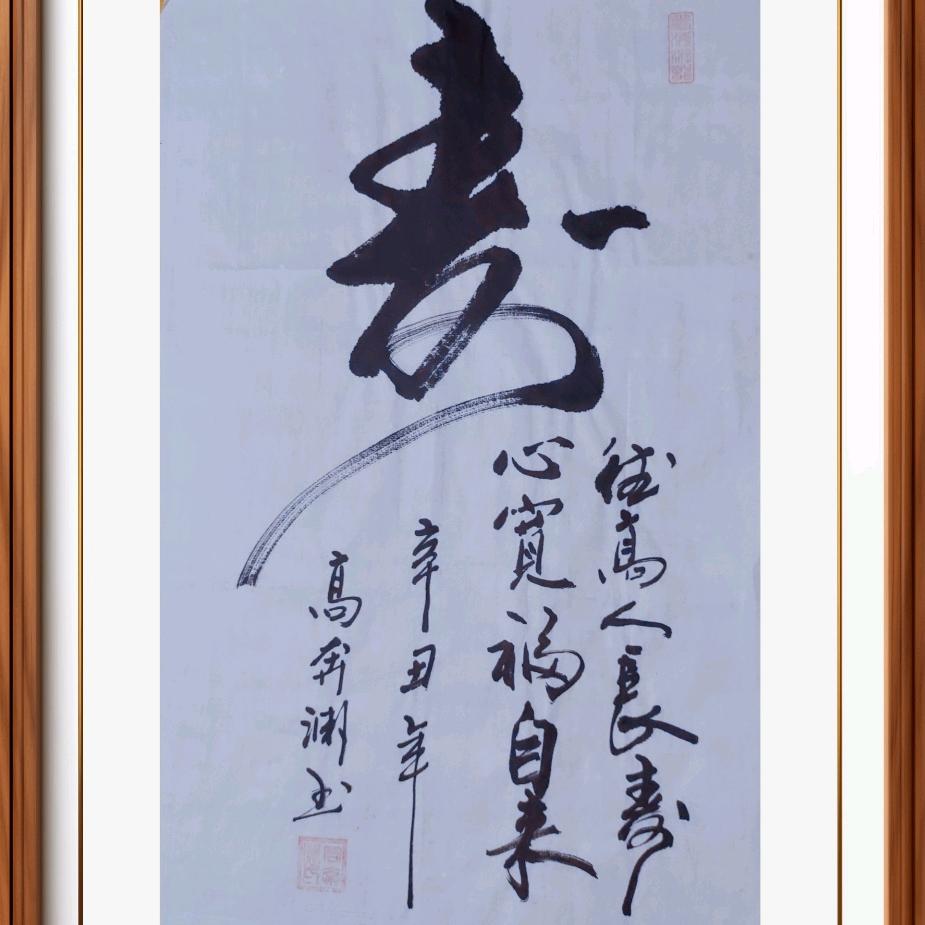 寿
德高人長寿
心寬福自来
辛丑年
高奔渊书